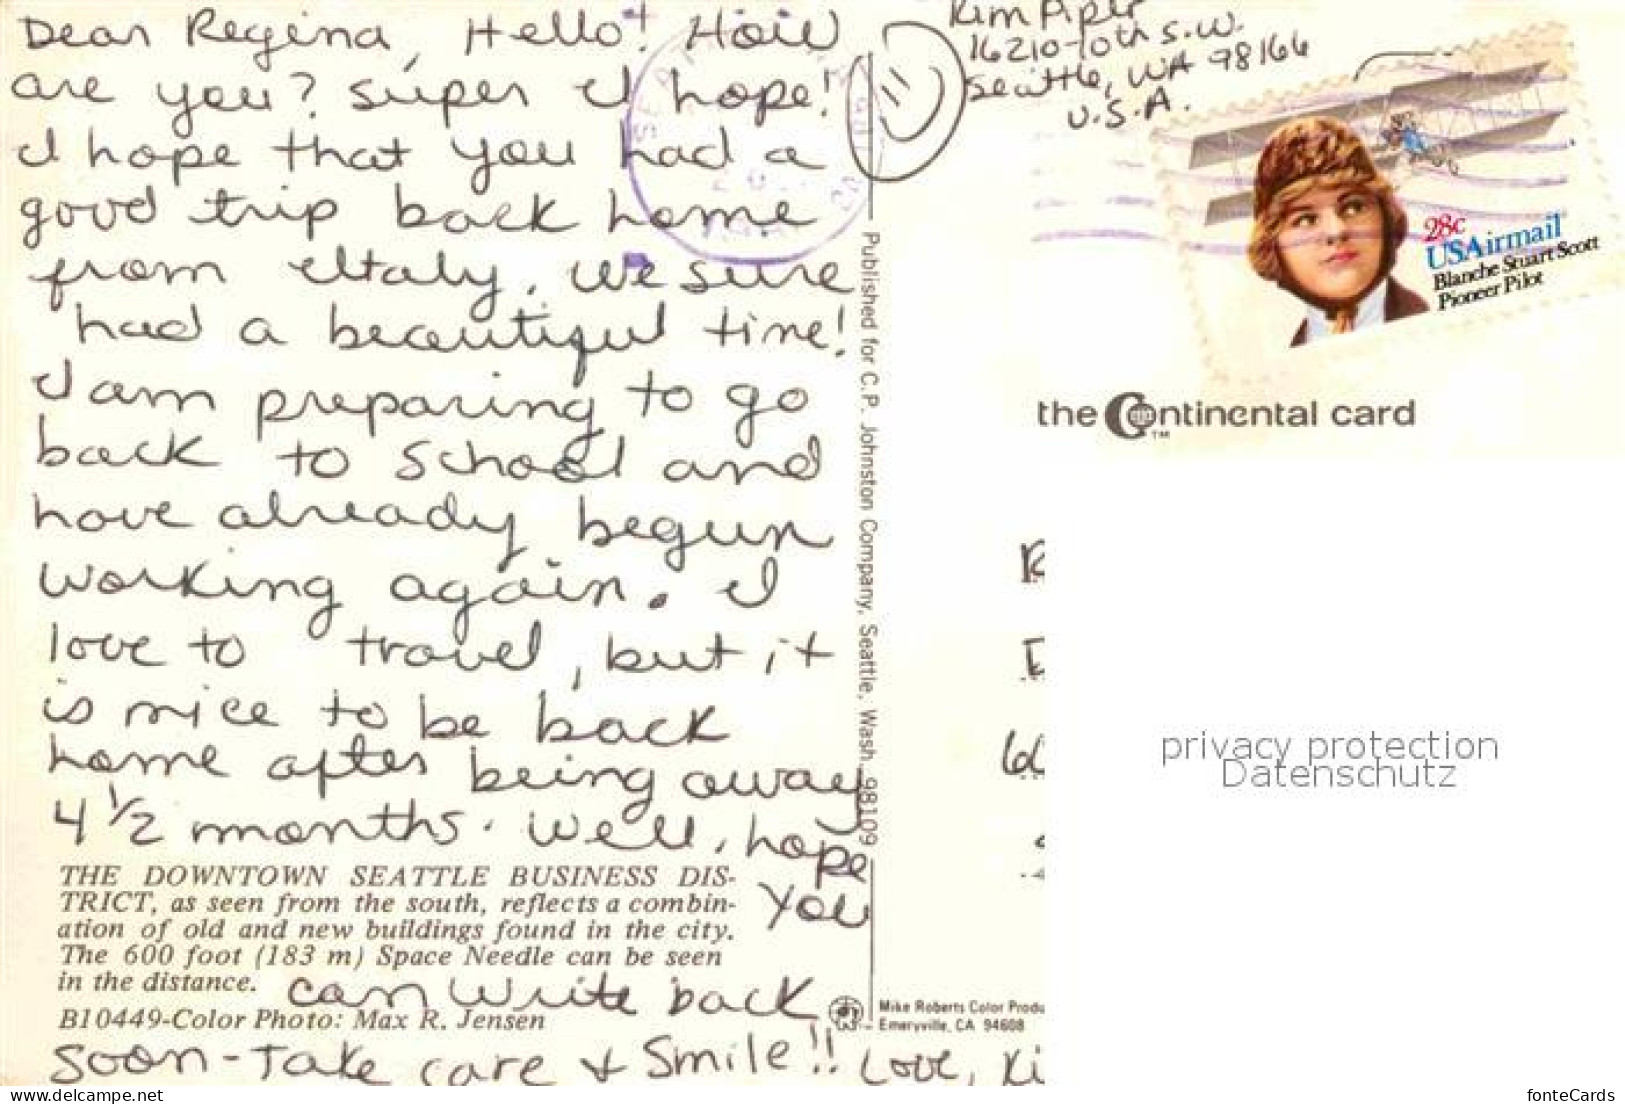 Dear Regina, Hello! How
are you? Super I hope!
I hope that you had a
good trip back home
from Italy. We sure
had a beautiful time!
I am preparing to go
back to school and
have already begun
working again. I
love to travel, but it
is nice to be back
home after being away
4 1/2 months. Well, hope
you
can write back
soon - Take care & Smile!! Love, Ki
THE DOWNTOWN SEATTLE BUSINESS DIS-
TRICT, as seen from the south, reflects a combin-
ation of old and new buildings found in the city.
The 600 foot (183 m) Space Needle can be seen
in the distance.
B10449-Color Photo: Max R. Jensen
Published for C.P. Johnston Company, Seattle, Wash. 98109
Kim Piper
16210-10th S.W.
Seattle, WA 98166
U.S.A.
28c
USAirmail
Blanche Stuart Scott
Pioneer Pilot
the Continental card
TM
privacy protection
Datenschutz
Mike Roberts Color Produ
Emeryville, CA 94608
www.delcampe.net
fonteCards